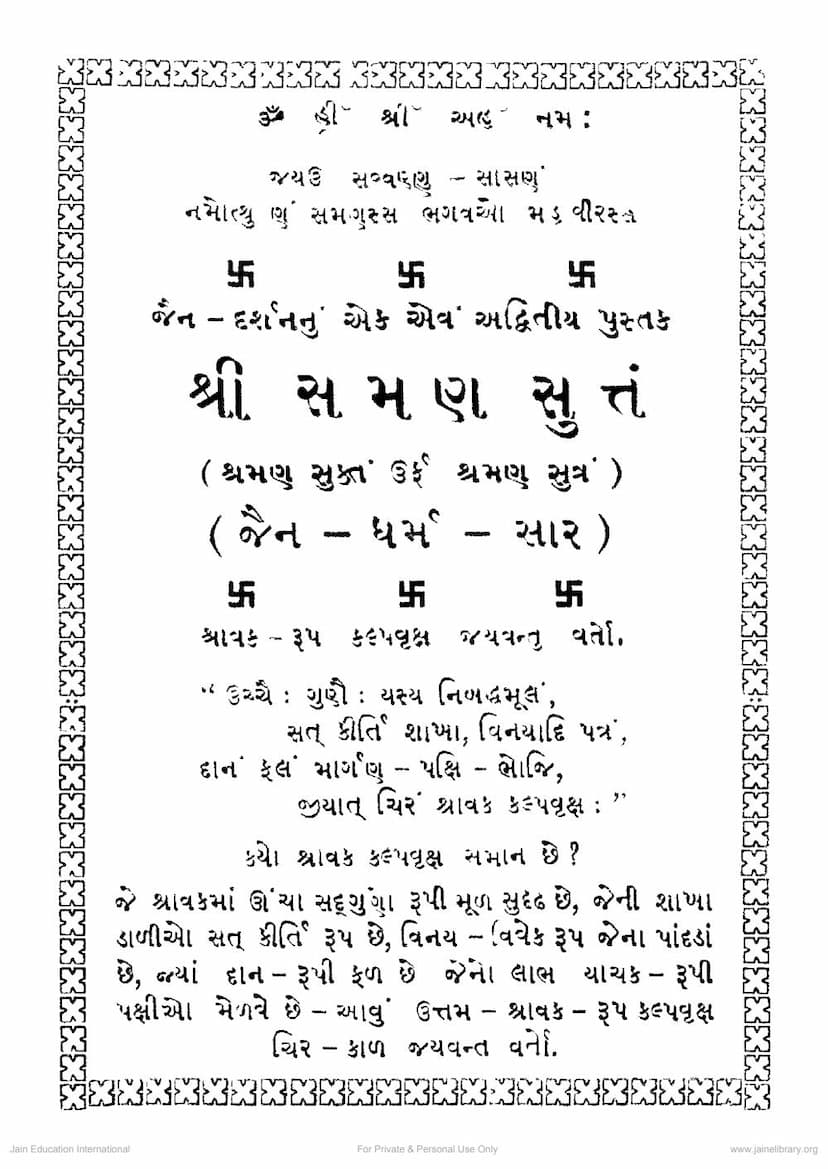 ૐ હ્રીઁ શ્રીઁ અર્હઁ નમઃ
જયઉ સવ્વણ્ણુ – સાસણં
નમોત્થુ ણં સમણસ્સ ભગવઓ મહાવીરસ્સ
卐 卐 卐
જૈન – દર્શનનું એક એવં અદ્વિતીય પુસ્તક
શ્રી સમણ સુત્તં
( શ્રમણ સુક્તં ઉર્ફે શ્રમણ સુત્રં )
( જૈન – ધર્મ – સાર )
卐 卐 卐
શ્રાવક – રૂપ કલ્પવૃક્ષ જયવન્તુ વર્તો.
“ ઉચ્ચૈઃ ગુણૈઃ યસ્ય નિબદ્ધમૂલં,
સત્ કીર્તિ શાખા, વિનયાદિ પત્રં,
દાનં ફલં માર્ગણ – પક્ષિ – ભોજિ,
જીયાત્ ચિરં શ્રાવક કલ્પવૃક્ષઃ ”
કયો શ્રાવક કલ્પવૃક્ષ સમાન છે ?
જે શ્રાવકમાં ઊંચા સદ્ગુણો રૂપી મૂળ સુદૃઢ છે, જેની શાખા
ડાળીઓ સત્ કીર્તિ રૂપ છે, વિનય – વિવેક રૂપ જેના પાંદડાં
છે, જ્યાં દાન – રૂપી ફળ છે જેનો લાભ યાચક – રૂપી
પક્ષીઓ મેળવે છે – આવું ઉત્તમ – શ્રાવક – રૂપ કલ્પવૃક્ષ
ચિર – કાળ જયવન્ત વર્તો.
Jain Education International For Private & Personal Use Only www.jainelibrary.org